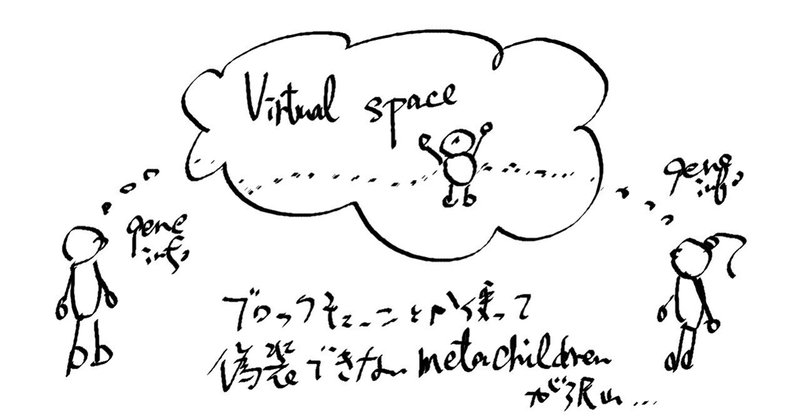 Virtual space
gene
info
gene
info
ブロックチェーンとか使って
偽装できないmetachildren
が沢山...